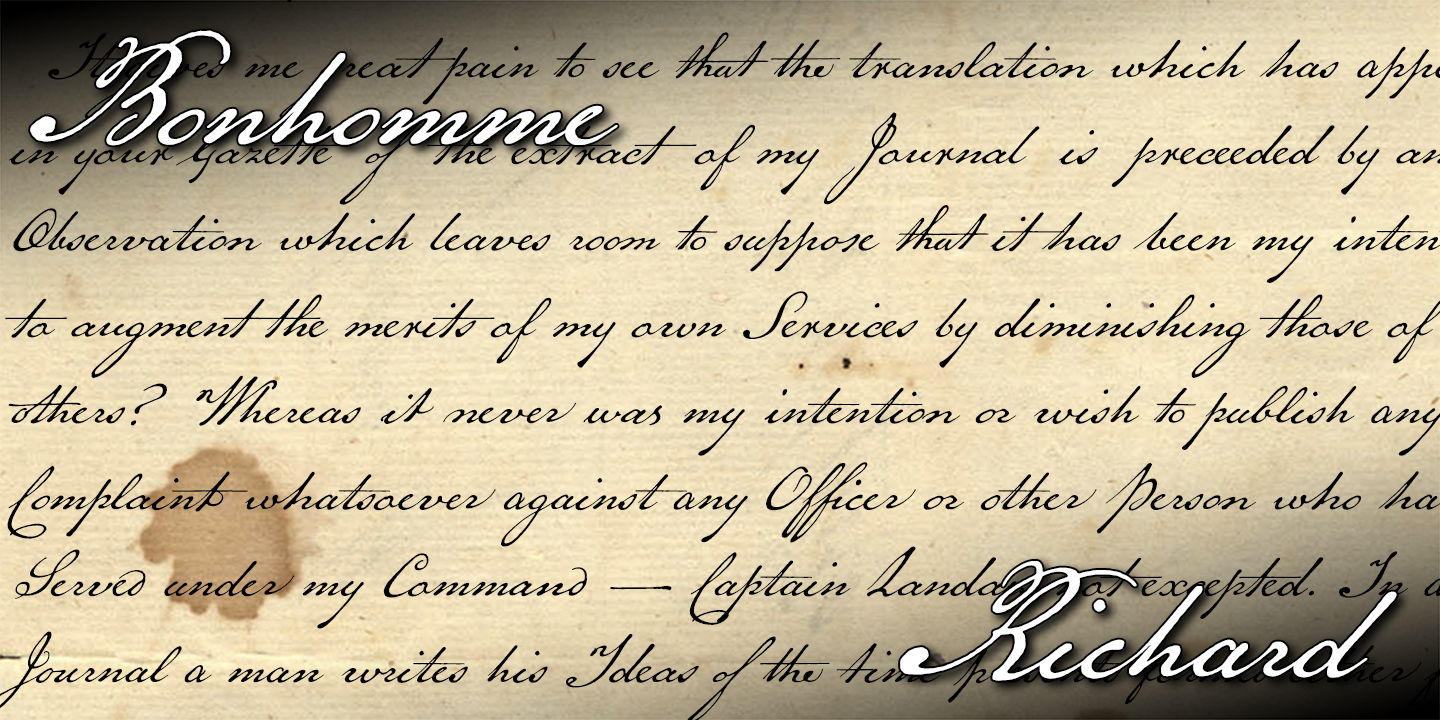 Bonhomme
me great pain to see that the translation which has
in your Gazette of the extract of my Journal is preceeded by
Observation which leaves room to suppose that it has been my
to augment the merits of my own Services by diminishing those of
others? Whereas it never was my intention or wish to publish any
Complaint whatsoever against any Officer or other Person who
Served under my Command — Captain not excepted. In
Journal a man writes his Ideas of the time
Richard